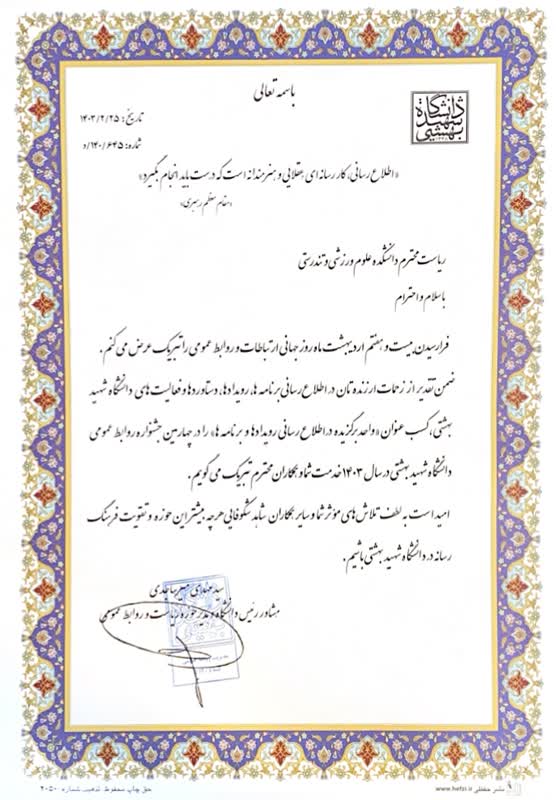 باسمه تعالی
دانشگاه شهید بهشتی
تاریخ: ۱۴۰۳/۲/۲۵
شماره: ۱۴۰/۶۴۵/د
«اطلاع رسانی، کار رسانه ای، عقلایی و هنرمندانه است که درست باید انجام بگیرد»
«مقام معظم رهبری»
ریاست محترم دانشکده علوم ورزشی و تندرستی
با سلام و احترام
فرارسیدن بیست و هفتم اردیبهشت ماه روز جهانی ارتباطات و روابط عمومی را تبریک عرض می کنم.
ضمن تقدیر از زحمات ارزنده تان در اطلاع رسانی برنامه ها، رویدادها، دستاوردها و فعالیت های دانشگاه شهید
بهشتی، کسب عنوان «واحد برگزیده در اطلاع رسانی رویدادها و برنامه ها» را در چهارمین جشنواره روابط عمومی
دانشگاه شهید بهشتی در سال ۱۴۰۳ خدمت شما و همکاران محترم تبریک می گویم.
امید است به لطف تلاش های مؤثر شما و سایر همکاران شاهد شکوفایی هرچه بیشتر این حوزه و تقویت فرهنگ
رسانه در دانشگاه شهید بهشتی باشیم.
سید مهدی میرساجدی
مشاور رئیس دانشگاه و مدیر حوزه ریاست و روابط عمومی
نشر حفظی www.hefzi.ir
حق چاپ محفوظ تذهیب شماره ۲۰۵۰